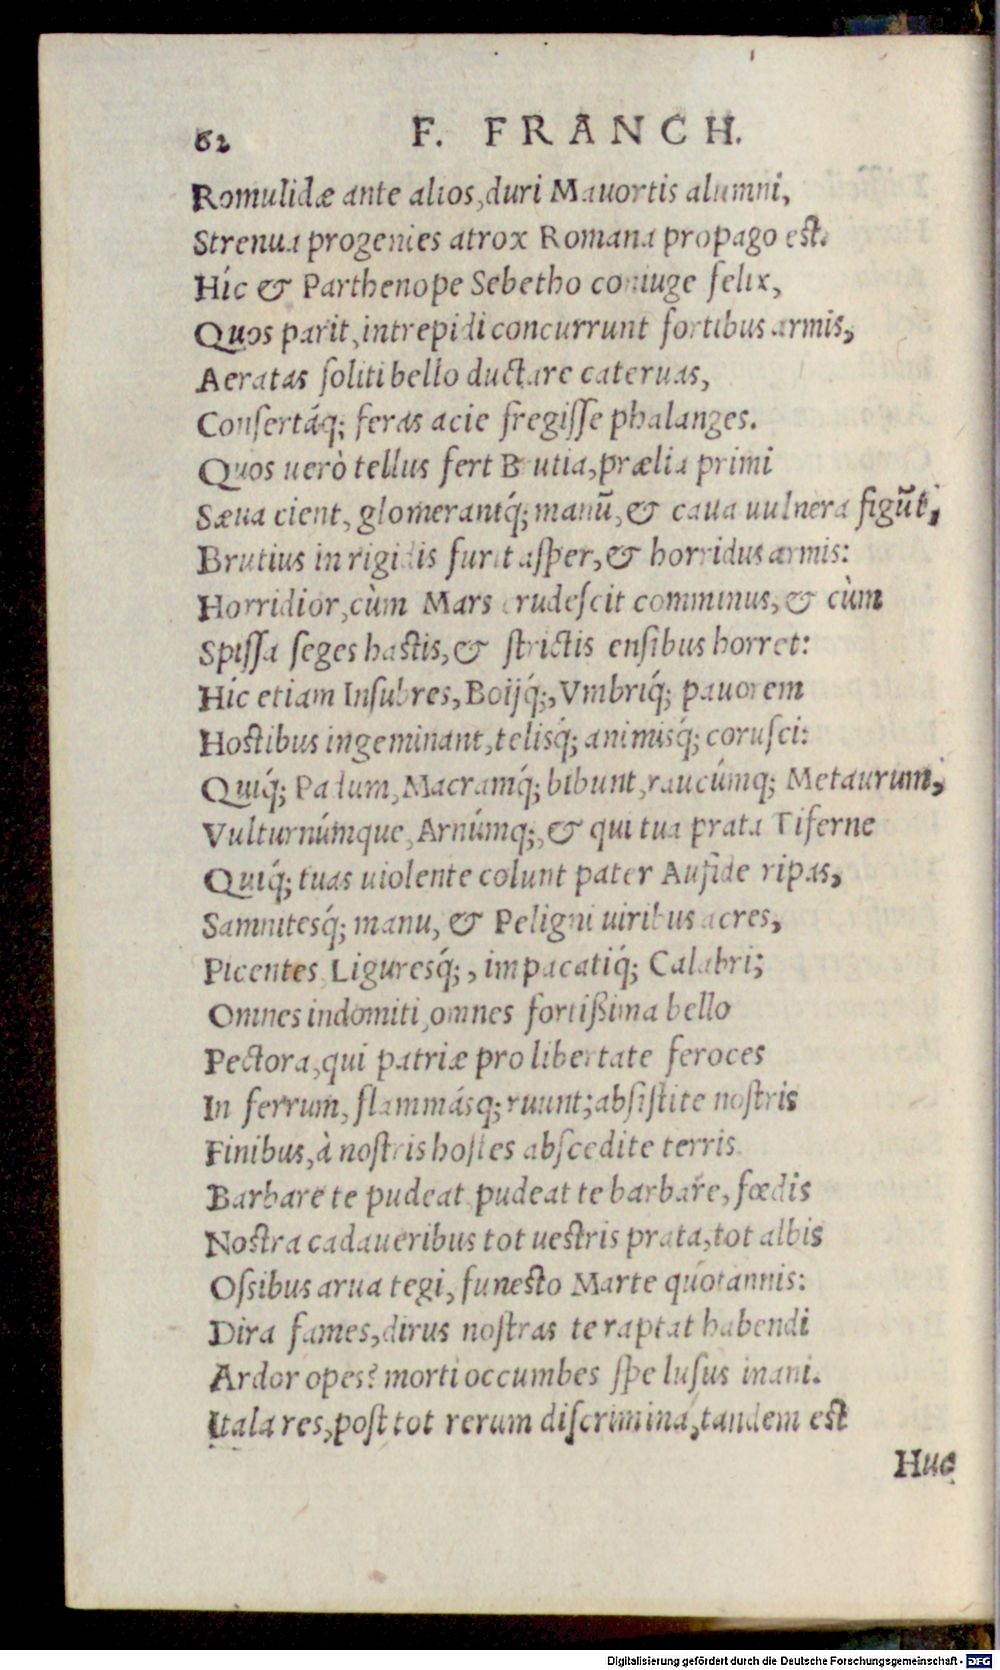 62 F. FRANCH.
Romulidæ ante alios, duri Mauortis alumni,
Strenua progenies atrox Romana propago est.
Hic & Parthenope Sebetho coniuge felix,
Quos parit, intrepidi concurrunt fortibus armis,
Aeratas soliti bello ductare cateruas,
Consertáq; feras acie fregisse phalanges.
Quos uerò tellus fert Brutia, prælia primi
Sæua cient, glomerantq́; manū, & caua uulnera figūt,
Brutius in rigidis furit asper, & horridus armis:
Horridior, cùm Mars crudescit comminus, & cùm
Spissa seges hastis, & strictis ensibus horret:
Hic etiam Insubres, Boijq́;, Vmbriq́; pauorem
Hostibus ingeminant, telisq́; animisq́; corusci:
Quiq́; Padum, Macramq́; bibunt, raucúmq; Metaurum,
Vulturnúmque, Arnúmq;, & qui tua prata Tiferne
Quiq́; tuas uiolente colunt pater Aufide ripas,
Samnitesq́; manu, & Peligni uiribus acres,
Picentes, Liguresq́;, impacatiq́; Calabri;
Omnes indomiti, omnes fortißima bello
Pectora, qui patriæ pro libertate feroces
In ferrum, flammásq; ruunt; absistite nostris
Finibus, à nostris hostes abscedite terris.
Barbare te pudeat, pudeat te barbare, fœdis
Nostra cadaueribus tot uestris prata, tot albis
Ossibus arua tegi, funesto Marte quotannis:
Dira fames, dirus nostras te raptat habendi
Ardor opes? morti occumbes spe lusus inani.
Itala res, post tot rerum discrimina, tandem est
Huc
Digitalisierung gefördert durch die Deutsche Forschungsgemeinschaft - DFG